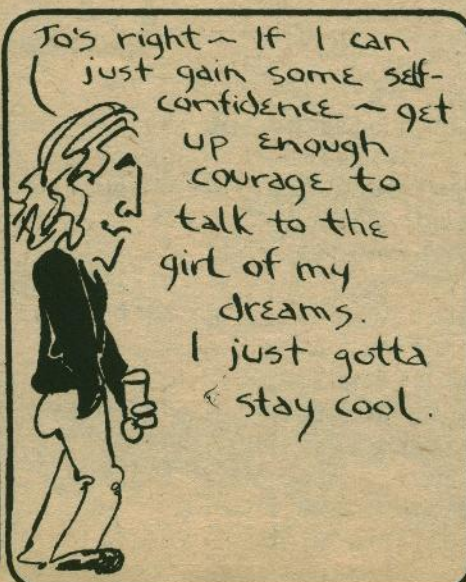 Jo's right ~ If I can
just gain some self-
confidence ~ get
up enough
courage to
talk to the
girl of my
dreams.
I just gotta
stay cool.